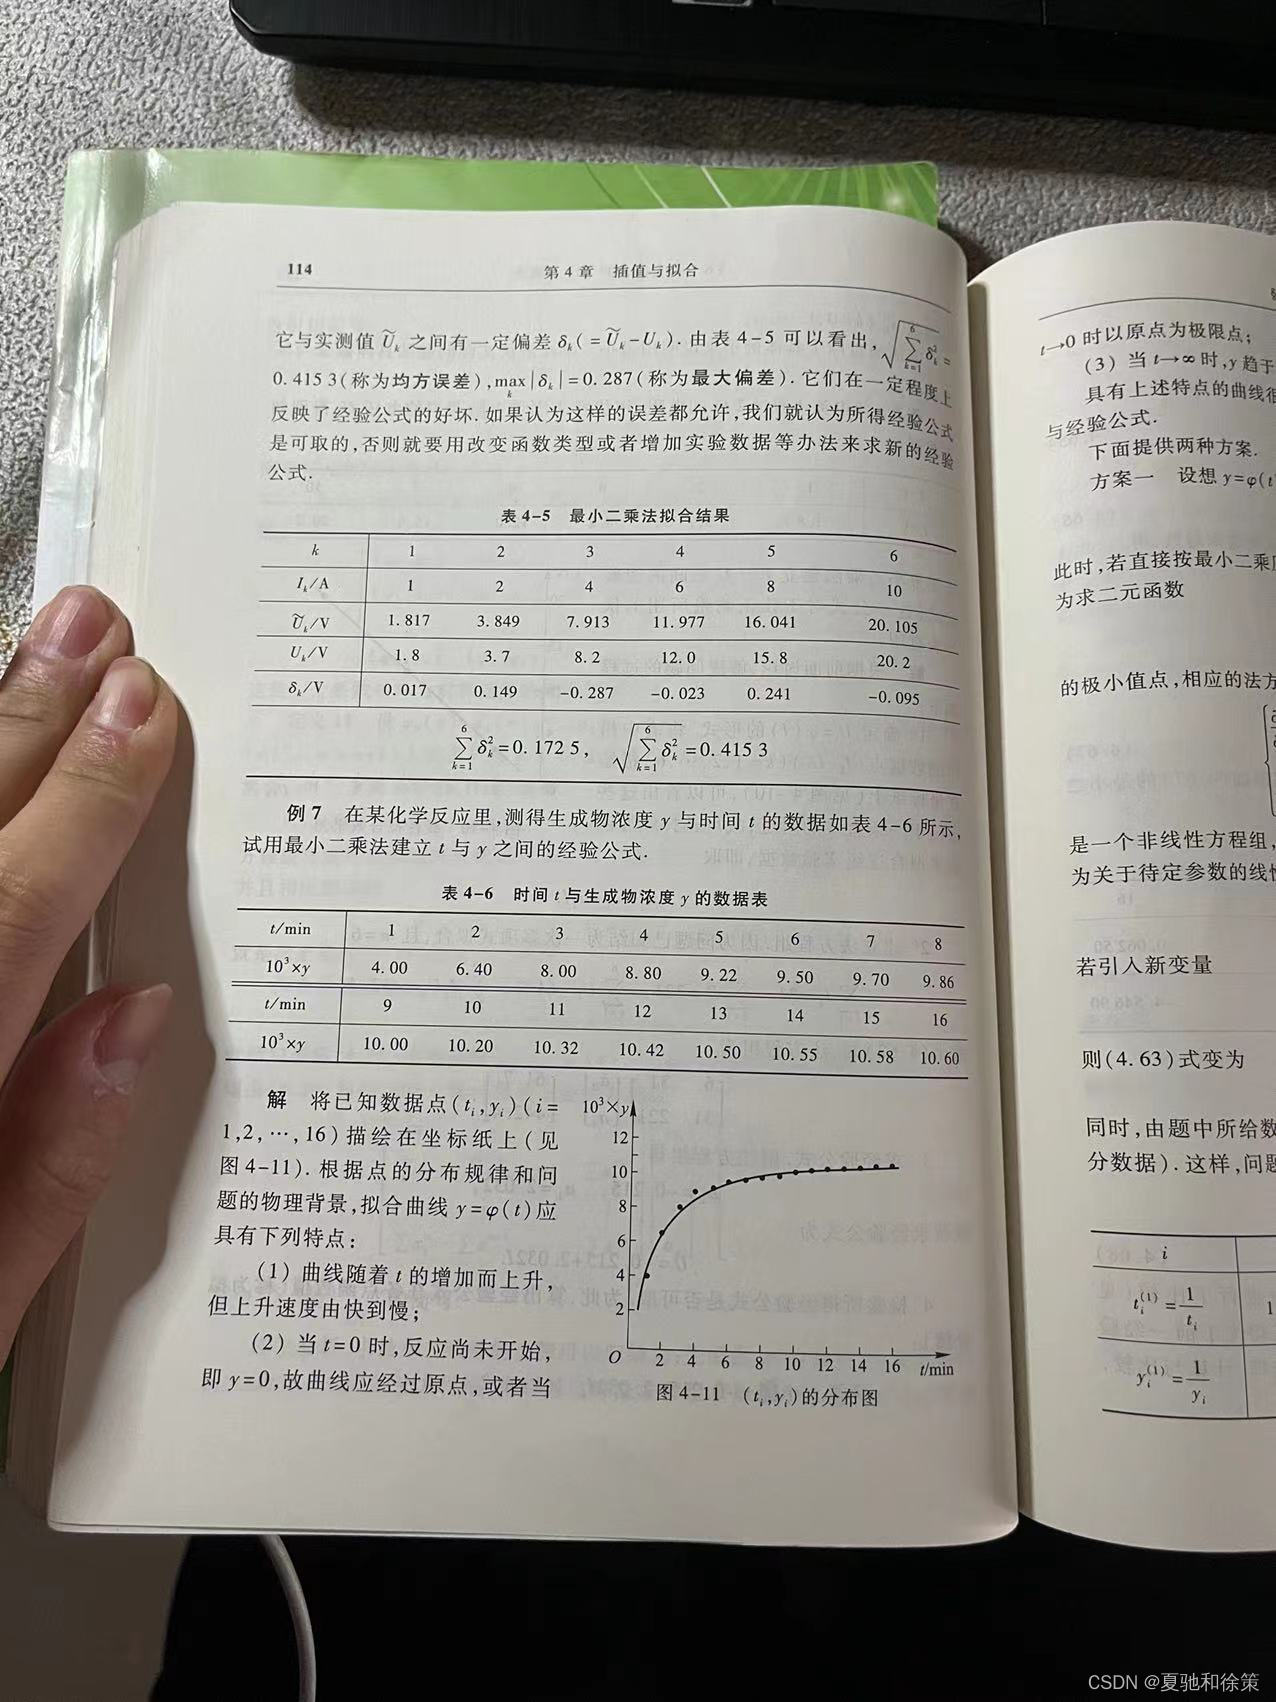 114
第4章 插值与拟合
它与实测值 Ũ_k 之间有一定偏差 δ_k(=Ũ_k-U_k). 由表 4-5 可以看出, √(∑_{k=1}^{6} δ_k^2) =
0.415 3(称为均方误差), max_k |δ_k| = 0.287(称为最大偏差). 它们在一定程度上
反映了经验公式的好坏. 如果认为这样的误差都允许, 我们就认为所得经验公式
是可取的, 否则就要用改变函数类型或者增加实验数据等办法来求新的经验
公式.
表 4-5 最小二乘法拟合结果
k 1 2 3 4 5 6
I_k/A 1 2 4 6 8 10
Ũ_k/V 1.817 3.849 7.913 11.977 16.041 20.105
U_k/V 1.8 3.7 8.2 12.0 15.8 20.2
δ_k/V 0.017 0.149 -0.287 -0.023 0.241 -0.095
∑_{k=1}^{6} δ_k^2 = 0.172 5, √(∑_{k=1}^{6} δ_k^2) = 0.415 3
例 7 在某化学反应里, 测得生成物浓度 y 与时间 t 的数据如表 4-6 所示,
试用最小二乘法建立 t 与 y 之间的经验公式.
表 4-6 时间 t 与生成物浓度 y 的数据表
t/min 1 2 3 4 5 6 7 8
10³×y 4.00 6.40 8.00 8.80 9.22 9.50 9.70 9.86
t/min 9 10 11 12 13 14 15 16
10³×y 10.00 10.20 10.32 10.42 10.50 10.55 10.58 10.60
解 将已知数据点(t_i, y_i)(i=
1,2,…,16)描绘在坐标纸上(见
图 4-11). 根据点的分布规律和问
题的物理背景, 拟合曲线 y=φ(t)应
具有下列特点:
(1) 曲线随着 t 的增加而上升,
但上升速度由快到慢;
(2) 当 t=0 时, 反应尚未开始,
即 y=0, 故曲线应经过原点, 或者当
10³×y
12
10
8
6
4
2
O 2 4 6 8 10 12 14 16 t/min
图 4-11 (t_i, y_i)的分布图
t→0 时以原点为极限点;
(3) 当 t→∞ 时, y 趋于
具有上述特点的曲线很
与经验公式.
下面提供两种方案.
方案一 设想 y=φ(t
此时, 若直接按最小二乘
为求二元函数
的极小值点, 相应的法方
是一个非线性方程组,
为关于待定参数的线
若引入新变量
则(4.63)式变为
同时, 由题中所给数
分数据). 这样, 问
i
t_i^(1) = 1/t_i 1
y_i^(1) = 1/y_i
CSDN @夏驰和徐策